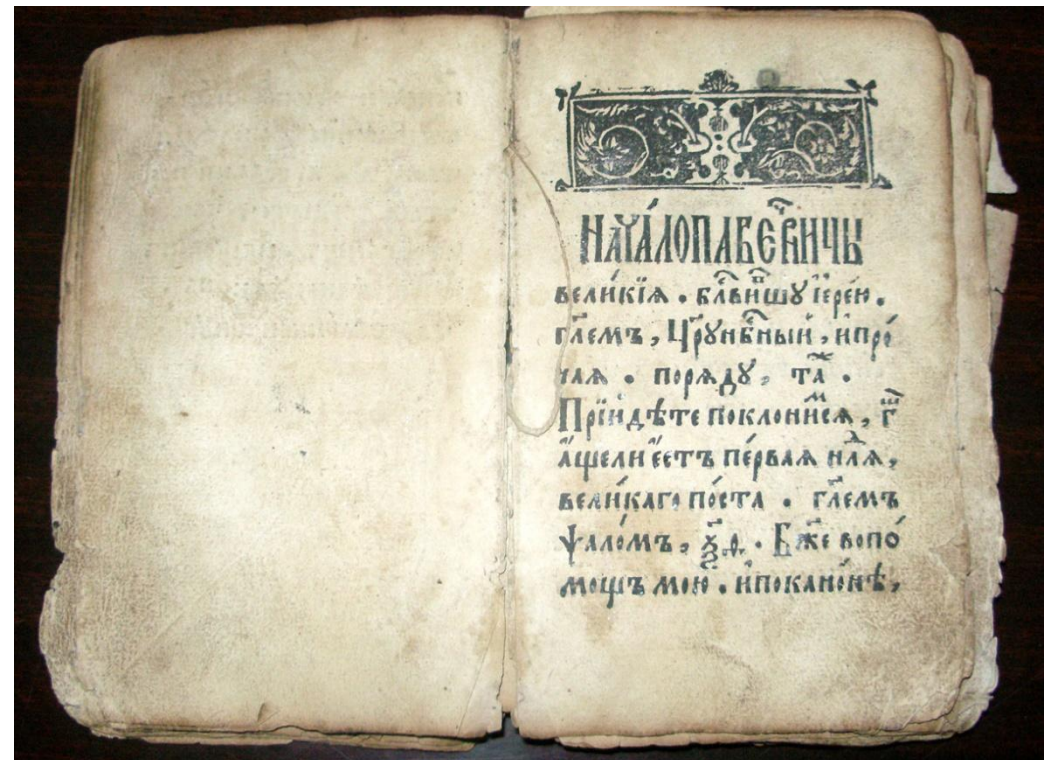 НАЧА́ЛОПАВЕЧЕ́РНИЧЫ
вели́кїѧ . бл҃ви́вшꙋ їере́ю .
гл҃емъ , Цр҃ꙋнб҃ный , и҆про́
чаѧ . порѧдꙋ , та́ж .
Прїидѣте поклони́мсѧ , г҃
А҆щели е҆сть пе́рваѧ нл҃ѧ ,
вели́каго по́ста . гл҃емъ
ѱало́мъ , ѯ҃ѳ . Бж҃е вопо́
мощь мою̀ . и҆покано́нѣ ,